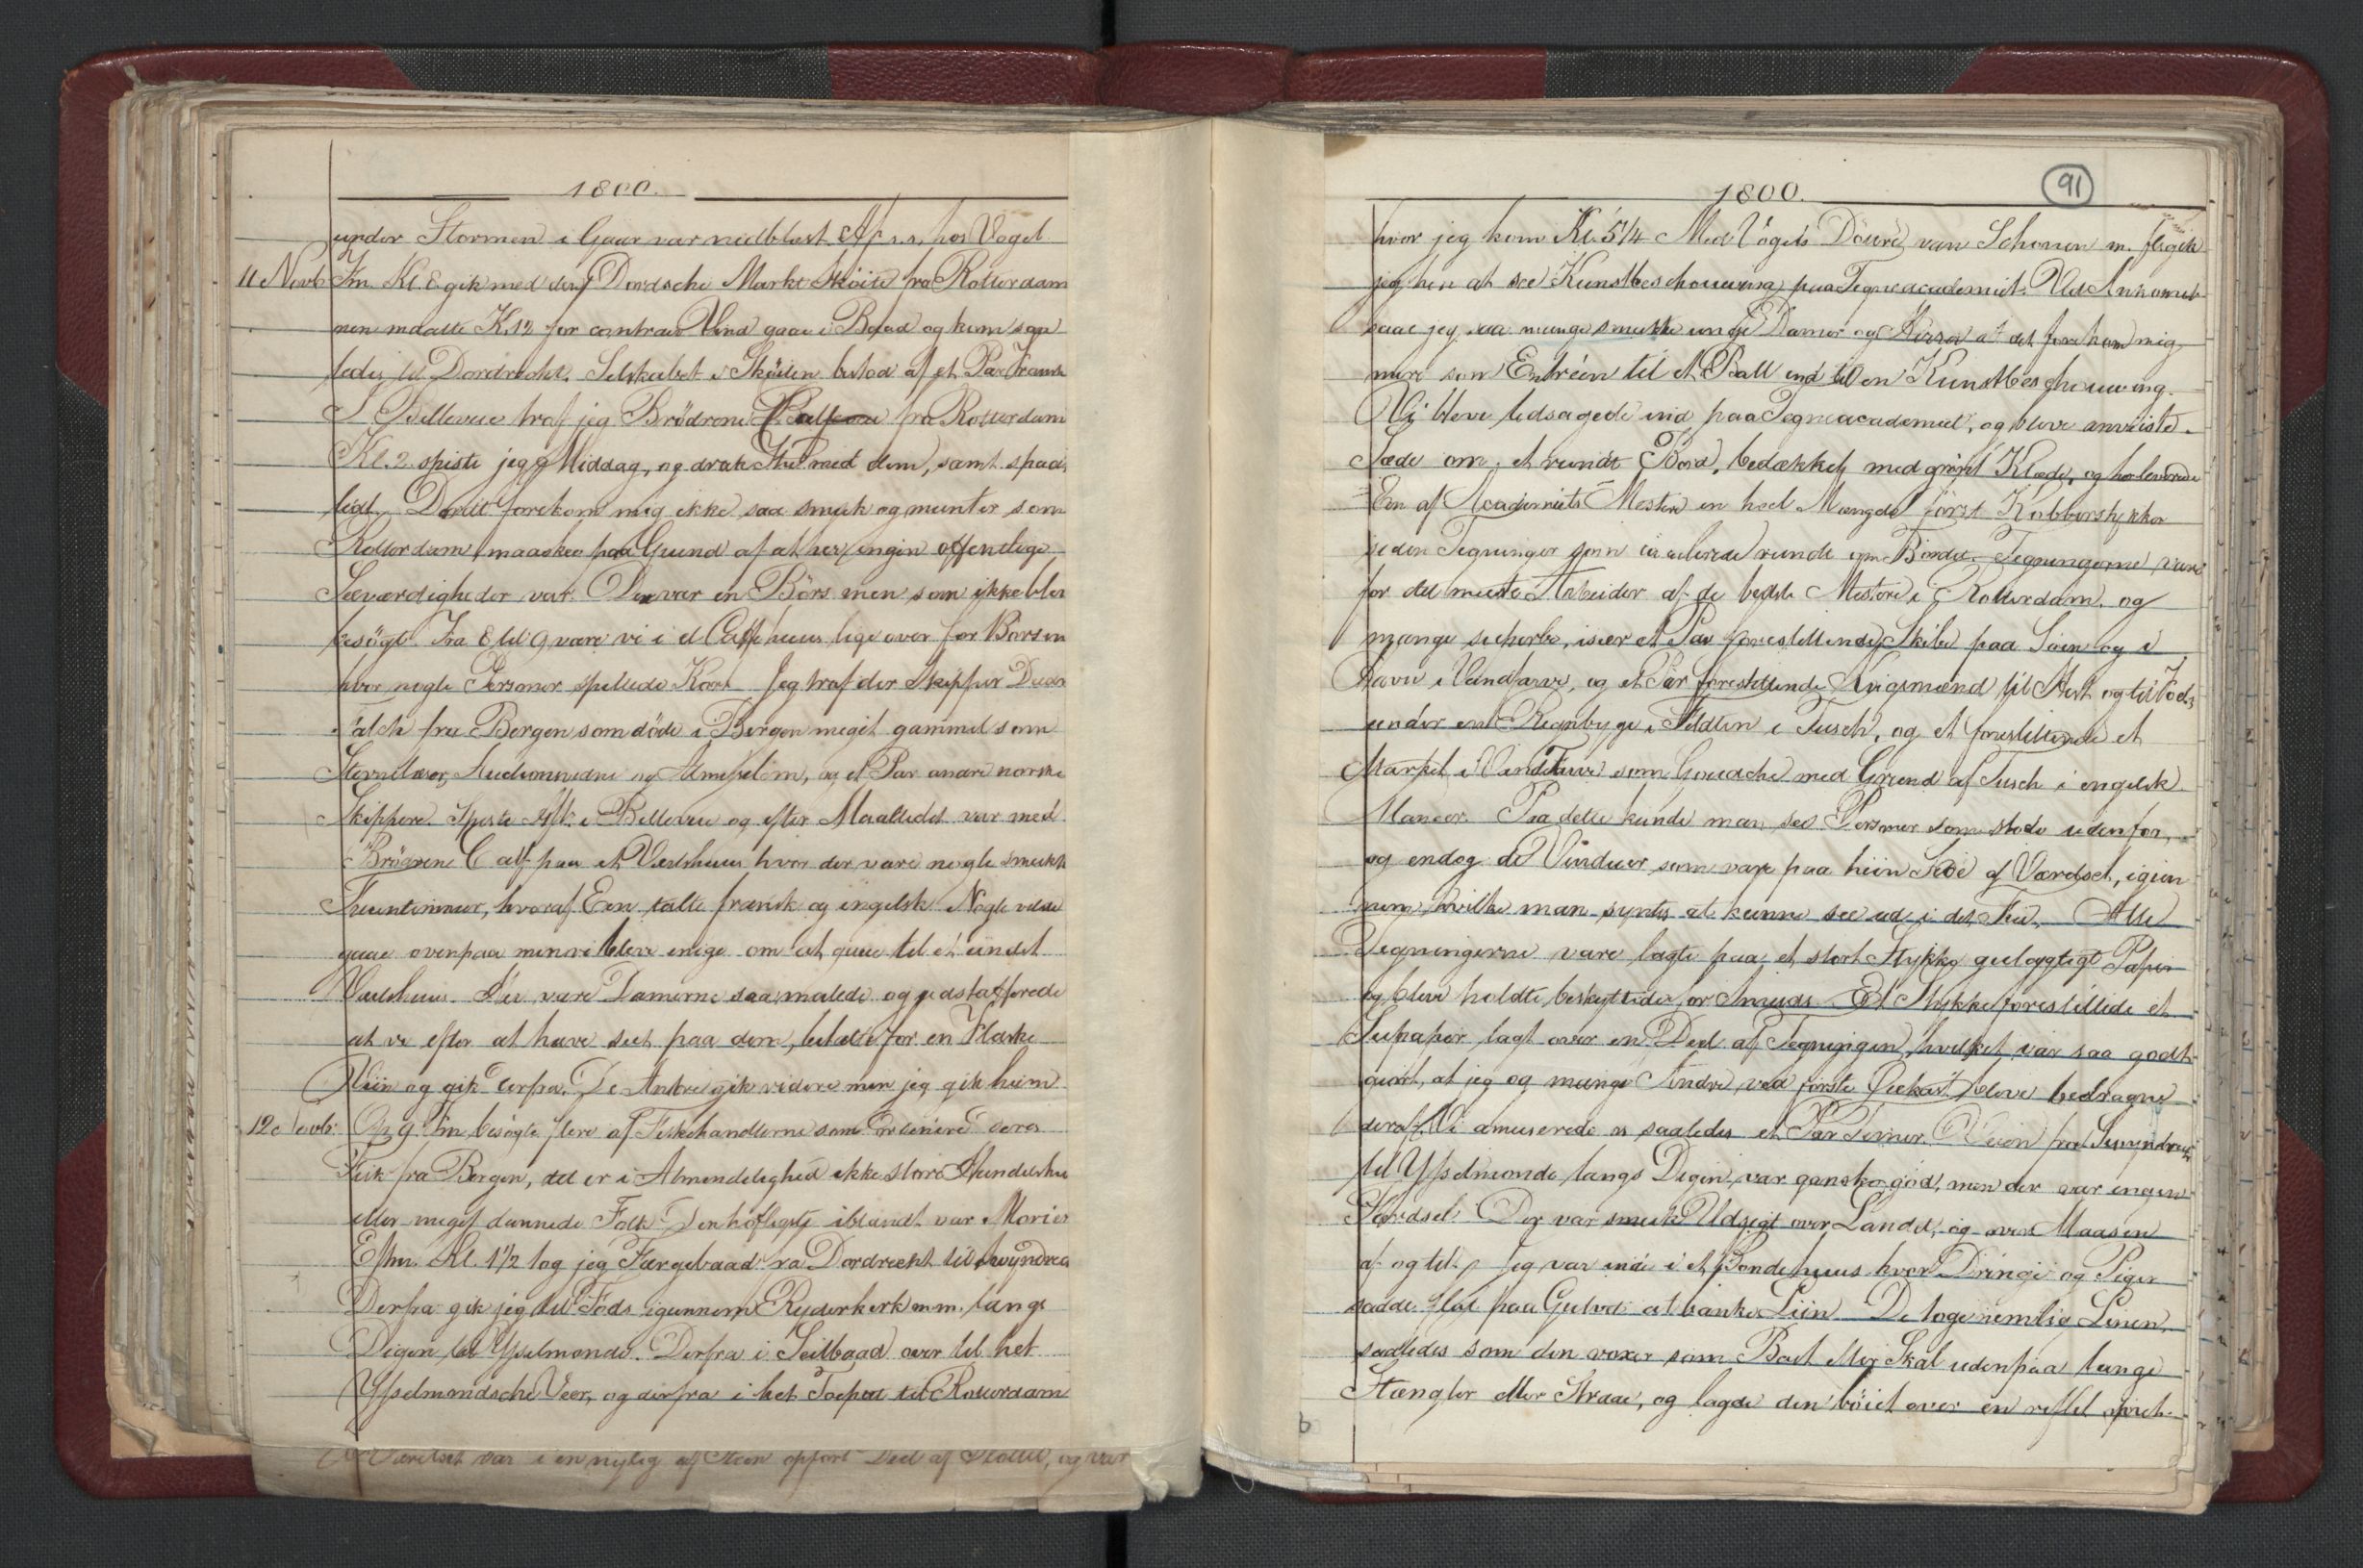 1800.
under Stormen i Gaar var nedblæst. Af s. s. hos Vogel
11 Novb Fm. Kl. 8 gik med den Dordsche Markt Skøite fra Rotterdam
men maatte Kl. 12 for contrair Vind gaae i Baad og kom saa
ledes til Dordrecht. Selskabet i Skøiten bestod af et Par Fransk
I Bellevue traf jeg Brødrene Calf fra Rotterdam
Kl. 2 spiste jeg Middag, og drak The med dem, samt spad
. Dordt forekom mig ikke saa smuk og munter som
Rotterdam, maaskee paa Grund af at her ingen offentlige
Seeværdigheder var. Der var en Börs men som ikke blev
besögt. Fra 8 til 9 vare vi i et Caffehuus lige over for Börsen
hvor nogle Personer spillede Kort. Jeg traf der Skipper
fra Bergen som döde i Bergen meget gammel som
Stervboer, Auctionsvidne og Almisselem, og et Par andre norske
Skippere. Spiste Aft. i Bellevue og efter Maaltidet var med
Brödrene Calf paa et Vertshuus hvor der vare nogle smukke
Fruentimmer, hvoraf Een talte fransk og engelsk. Nogle vilde
gaae ovenpaa men vi bleve enige om at gaae til et andet
Vertshuus. Der vare Damerne saa malede og udstafferede
at vi efter at have seet paa dem, betalte for en Flaske
Viin og gik derfra. De Andre gik videre men jeg gik hiem
12 Novb: Kl. 9 Fm. besögte flere af Fiskehandlerne som ordinere deres
Fisk fra Bergen, det er i Almindelighed ikke store Handelshuse
eller meget dannede Folk. Den höfligste iblandt var Morier
Efm. Kl. 1 1/2 tog jeg Færgebaad fra Dordrecht til Swyndrea
Derfra gik jeg til Fods igiennem Ryderkerk m.m. langs
Digen til Ysselmonde. Derfra i Seilbaad over til het
Ysselmondsche Veer, og derfra i het Toepad til Rotterdam
Værelset var i en nylig af Steen opført Deel af Slottet, og var
91
1800.
hvor jeg kom Kl. 5 1/4. Med Vögels Döuré van Schonen m. fl. gik
jeg hen at see Kunstbeschouwing paa Tegneacademiet. Ved Ankomsten
saae jeg saa mange smukke unge Damer og Herrer at det forekom mig
mere som Entréen til et Ball end til en Kunstbeschouwing.
Vi bleve ledsagede ind paa Tegneacademiet, og bleve anviiste
Sæde om et rundt Bord, bedækket med grønt Klæde, og her leverede
Een af Academiets Mestere en heel Mængde först Kobberstykker
siden Tegninger som circulerede rundt om Bordet. Tegningerne vare
for det meste Arbeider af de bedste Mestere i Rotterdam, og
mange superbe, især et Par forestillende Skibe paa Söen og i
Havn i Vandfarve, og et Par forestillende Krigsmænd til Hest og til Fods
under en Regnbyge i Felten i Tusch, og et forestillende et
Market i Vandfarve som Gouache med Grund af Tusch i engelsk
Maneer. Paa dette kunde man see Personer som stode udenfor,
og endog de Vinduer som vare paa hiin Side af Værelset, igien
nem hvilke man syntes at kunne see ud i det Frie. Alle
Tegningerne vare lagte paa et stort Stykke guulagtigt Papir
og bleve holdte beskyttede for Smuds. Et Stykke forestillede et
Silkepapir lagt over en Deel af Tegningen, hvilket var saa godt
giort, at jeg og mange Andre ved förste Öiekast bleve bedragne
deraf. Vi amuserede os saaledes et Par Timer. Veien fra Swyndrea
til Ysselmonde langs Digen var ganske god, men der var ingen
Færdsel. Der var smuk Udsigt over Landet, og over Maasen
af og til. Jeg var inde i et Bondehuus hvor Drenge og Piger
sadde flat paa Gulvet at banke Liin. De toge nemlig Linen,
saaledes som den voxer som Bark eller Skal udenpaa lange
Stængler eller Straae, og lagde den böiet over en riflet opret-